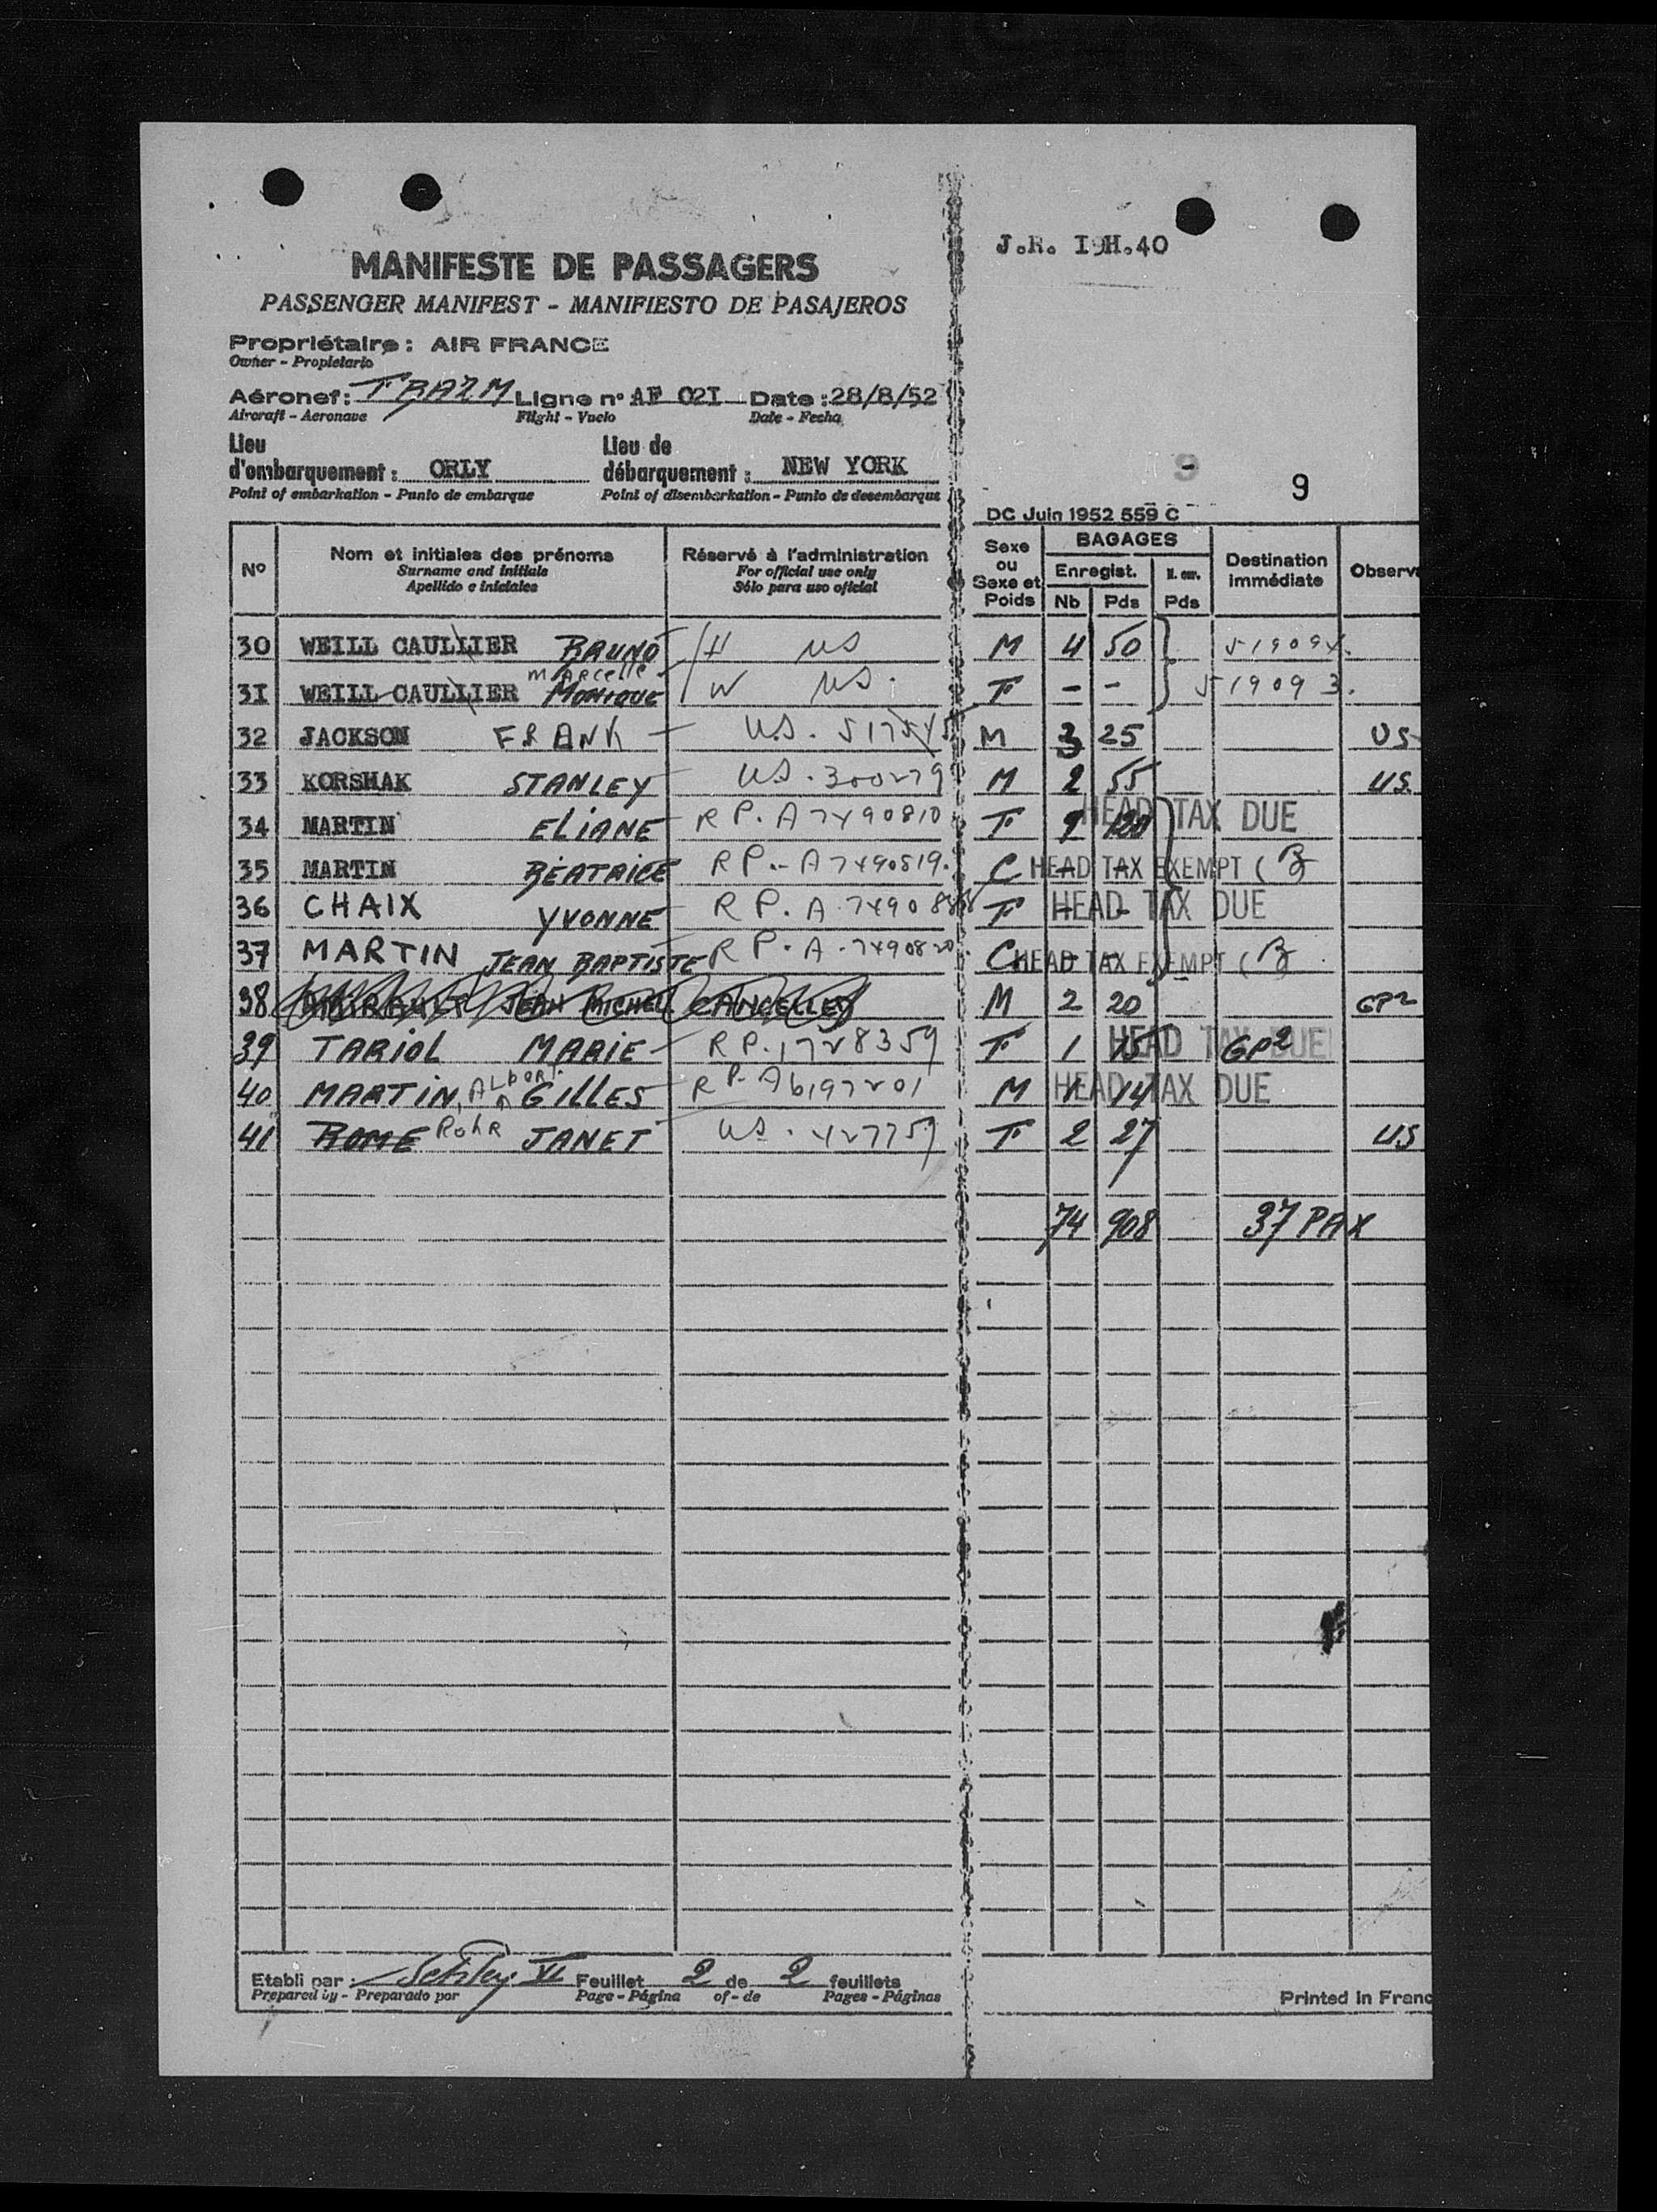 J.R. I9H.40
MANIFESTE DE PASSAGERS
PASSENGER MANIFEST - MANIFIESTO DE PASAJEROS
Propriétaire : AIR FRANCE
Owner - Propietario
Aéronef : FBAZM Ligne n° AF 02I Date : 28/8/52
Aircraft - Aeronave Flight - Vuelo Date - Fecha
Lieu d'embarquement : ORLY Lieu de débarquement : NEW YORK
Point of embarkation - Punto de embarque Point of disembarkation - Punto de desembarque
9 9
DC Juin 1952 559 C
N° Nom et initiales des prénoms Réservé à l'administration Sexe ou Sexe et Poids BAGAGES Destination immédiate Observ
Surname and initials For official use only Enregist. N. enr.
Apellido e iniciales Sólo para uso oficial Nb Pds Pds
30 WEILL CAULLIER BRUNO H US M 4 50 519094.
31 WEILL CAULLIER Marcelle MONIQUE W US. F - - 519093.
32 JACKSON FRANK U.S. M 3 25 US
33 KORSHAK STANLEY US. 300279 M 2 55 US.
34 MARTIN ELIANE RP. A7490810 F 9 120 HEAD TAX DUE
35 MARTIN BÉATRICE RP. A7490819. C HEAD TAX EXEMPT (
36 CHAIX YVONNE RP. A. F HEAD TAX DUE
37 MARTIN JEAN BAPTISTE RP. A. 7490820. C HEAD TAX EXEMPT (
38 JEAN MICHEL CANCELLED M 2 20 GP2
39 TARIOL MARIE RP. 1728359 F 1 15 HEAD TAX DUE GP2
40 MARTIN, Albert GILLES RP. A6197201 M 1 14 HEAD TAX DUE
41 ROME Rohr JANET US. 427759 F 2 27 US
74 908 37 PAX
Etabli par : Feuillet 2 de 2 feuillets
Prepared by - Preparado por Page - Página of - de Pages - Páginas
Printed in Franc